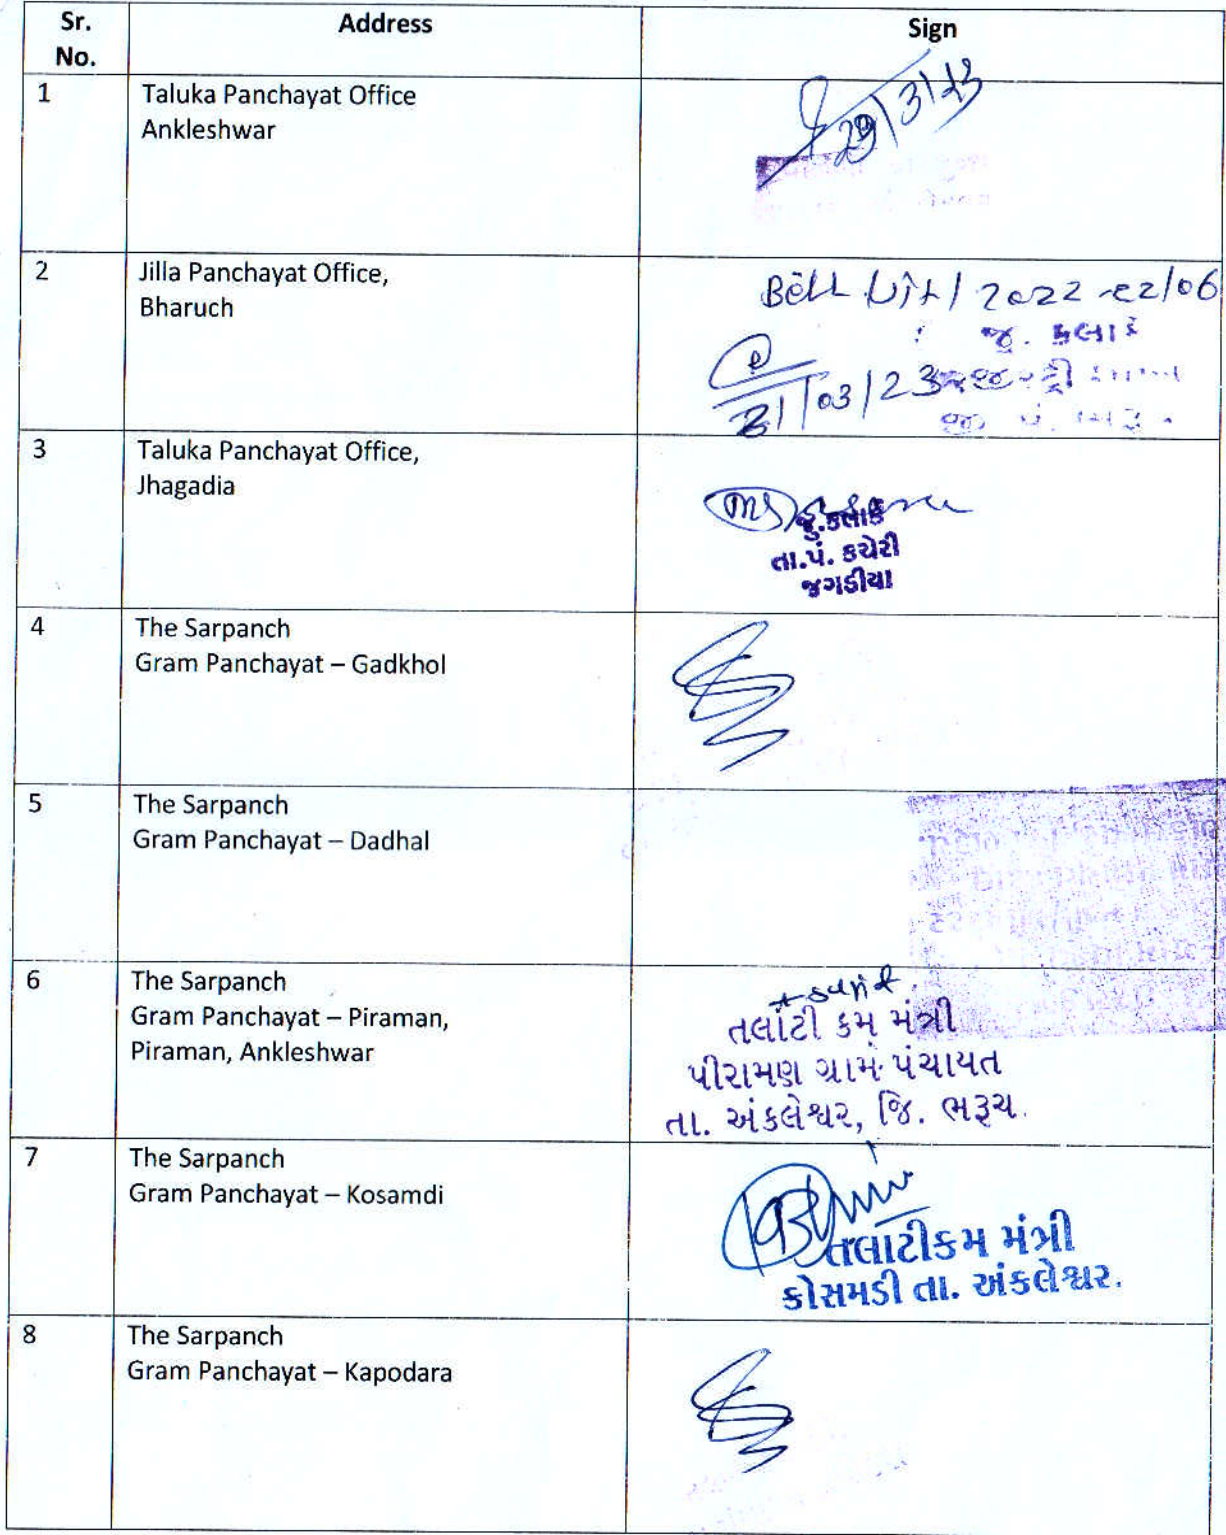 Sr.
No.
Address
Sign
1
Taluka Panchayat Office
Ankleshwar
29/3/23
2
Jilla Panchayat Office,
Bharuch
જુ. કલાર્ક
31/03/23
3
Taluka Panchayat Office,
Jhagadia
જુ.કલાર્ક
તા.પં. કચેરી
જગડીયા
4
The Sarpanch
Gram Panchayat – Gadkhol
5
The Sarpanch
Gram Panchayat – Dadhal
6
The Sarpanch
Gram Panchayat – Piraman,
Piraman, Ankleshwar
તલાટી કમ મંત્રી
પીરામણ ગ્રામ પંચાયત
તા. અંકલેશ્વર, જિ. ભરૂચ.
7
The Sarpanch
Gram Panchayat – Kosamdi
તલાટીકમ મંત્રી
કોસમડી તા. અંકલેશ્વર.
8
The Sarpanch
Gram Panchayat – Kapodara